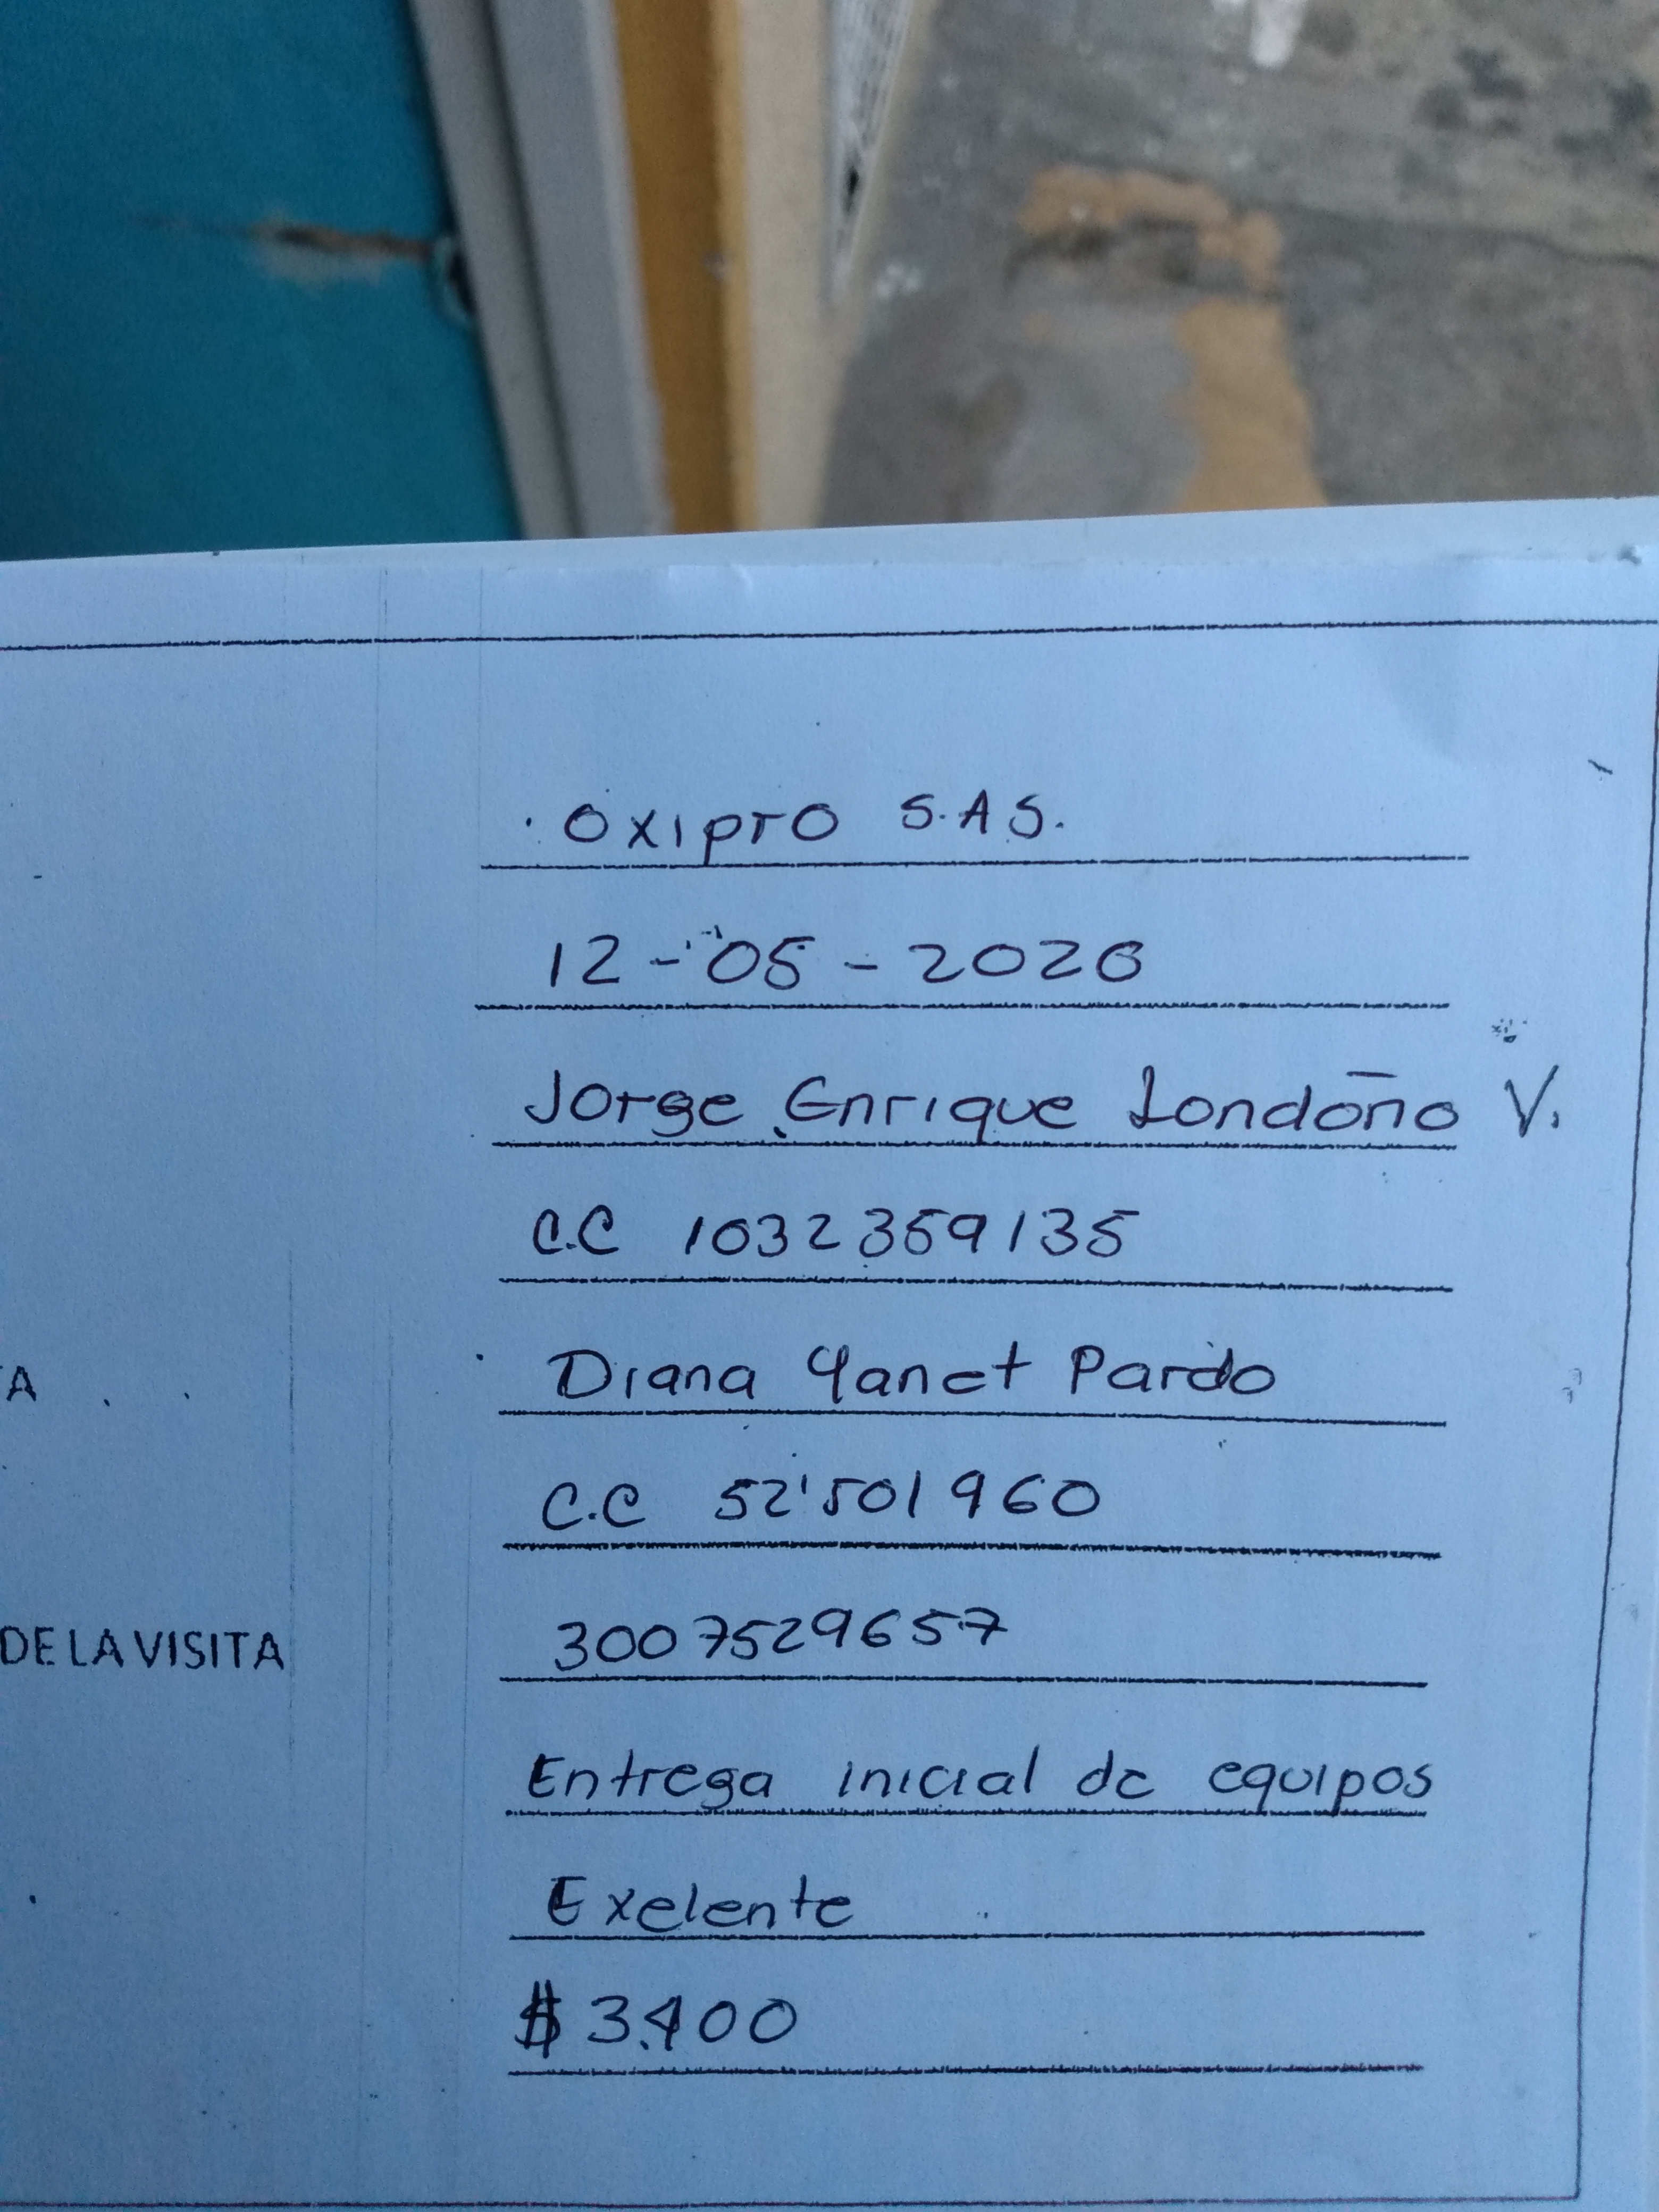 Oxipro S.A.S.
12-05-2020
Jorge Enrique Londoño V.
C.C 1032359135
A Diana Yanet Pardo
C.C 52'501960
DE LA VISITA 3007529657
Entrega inicial de equipos
Exelente
$ 3.400